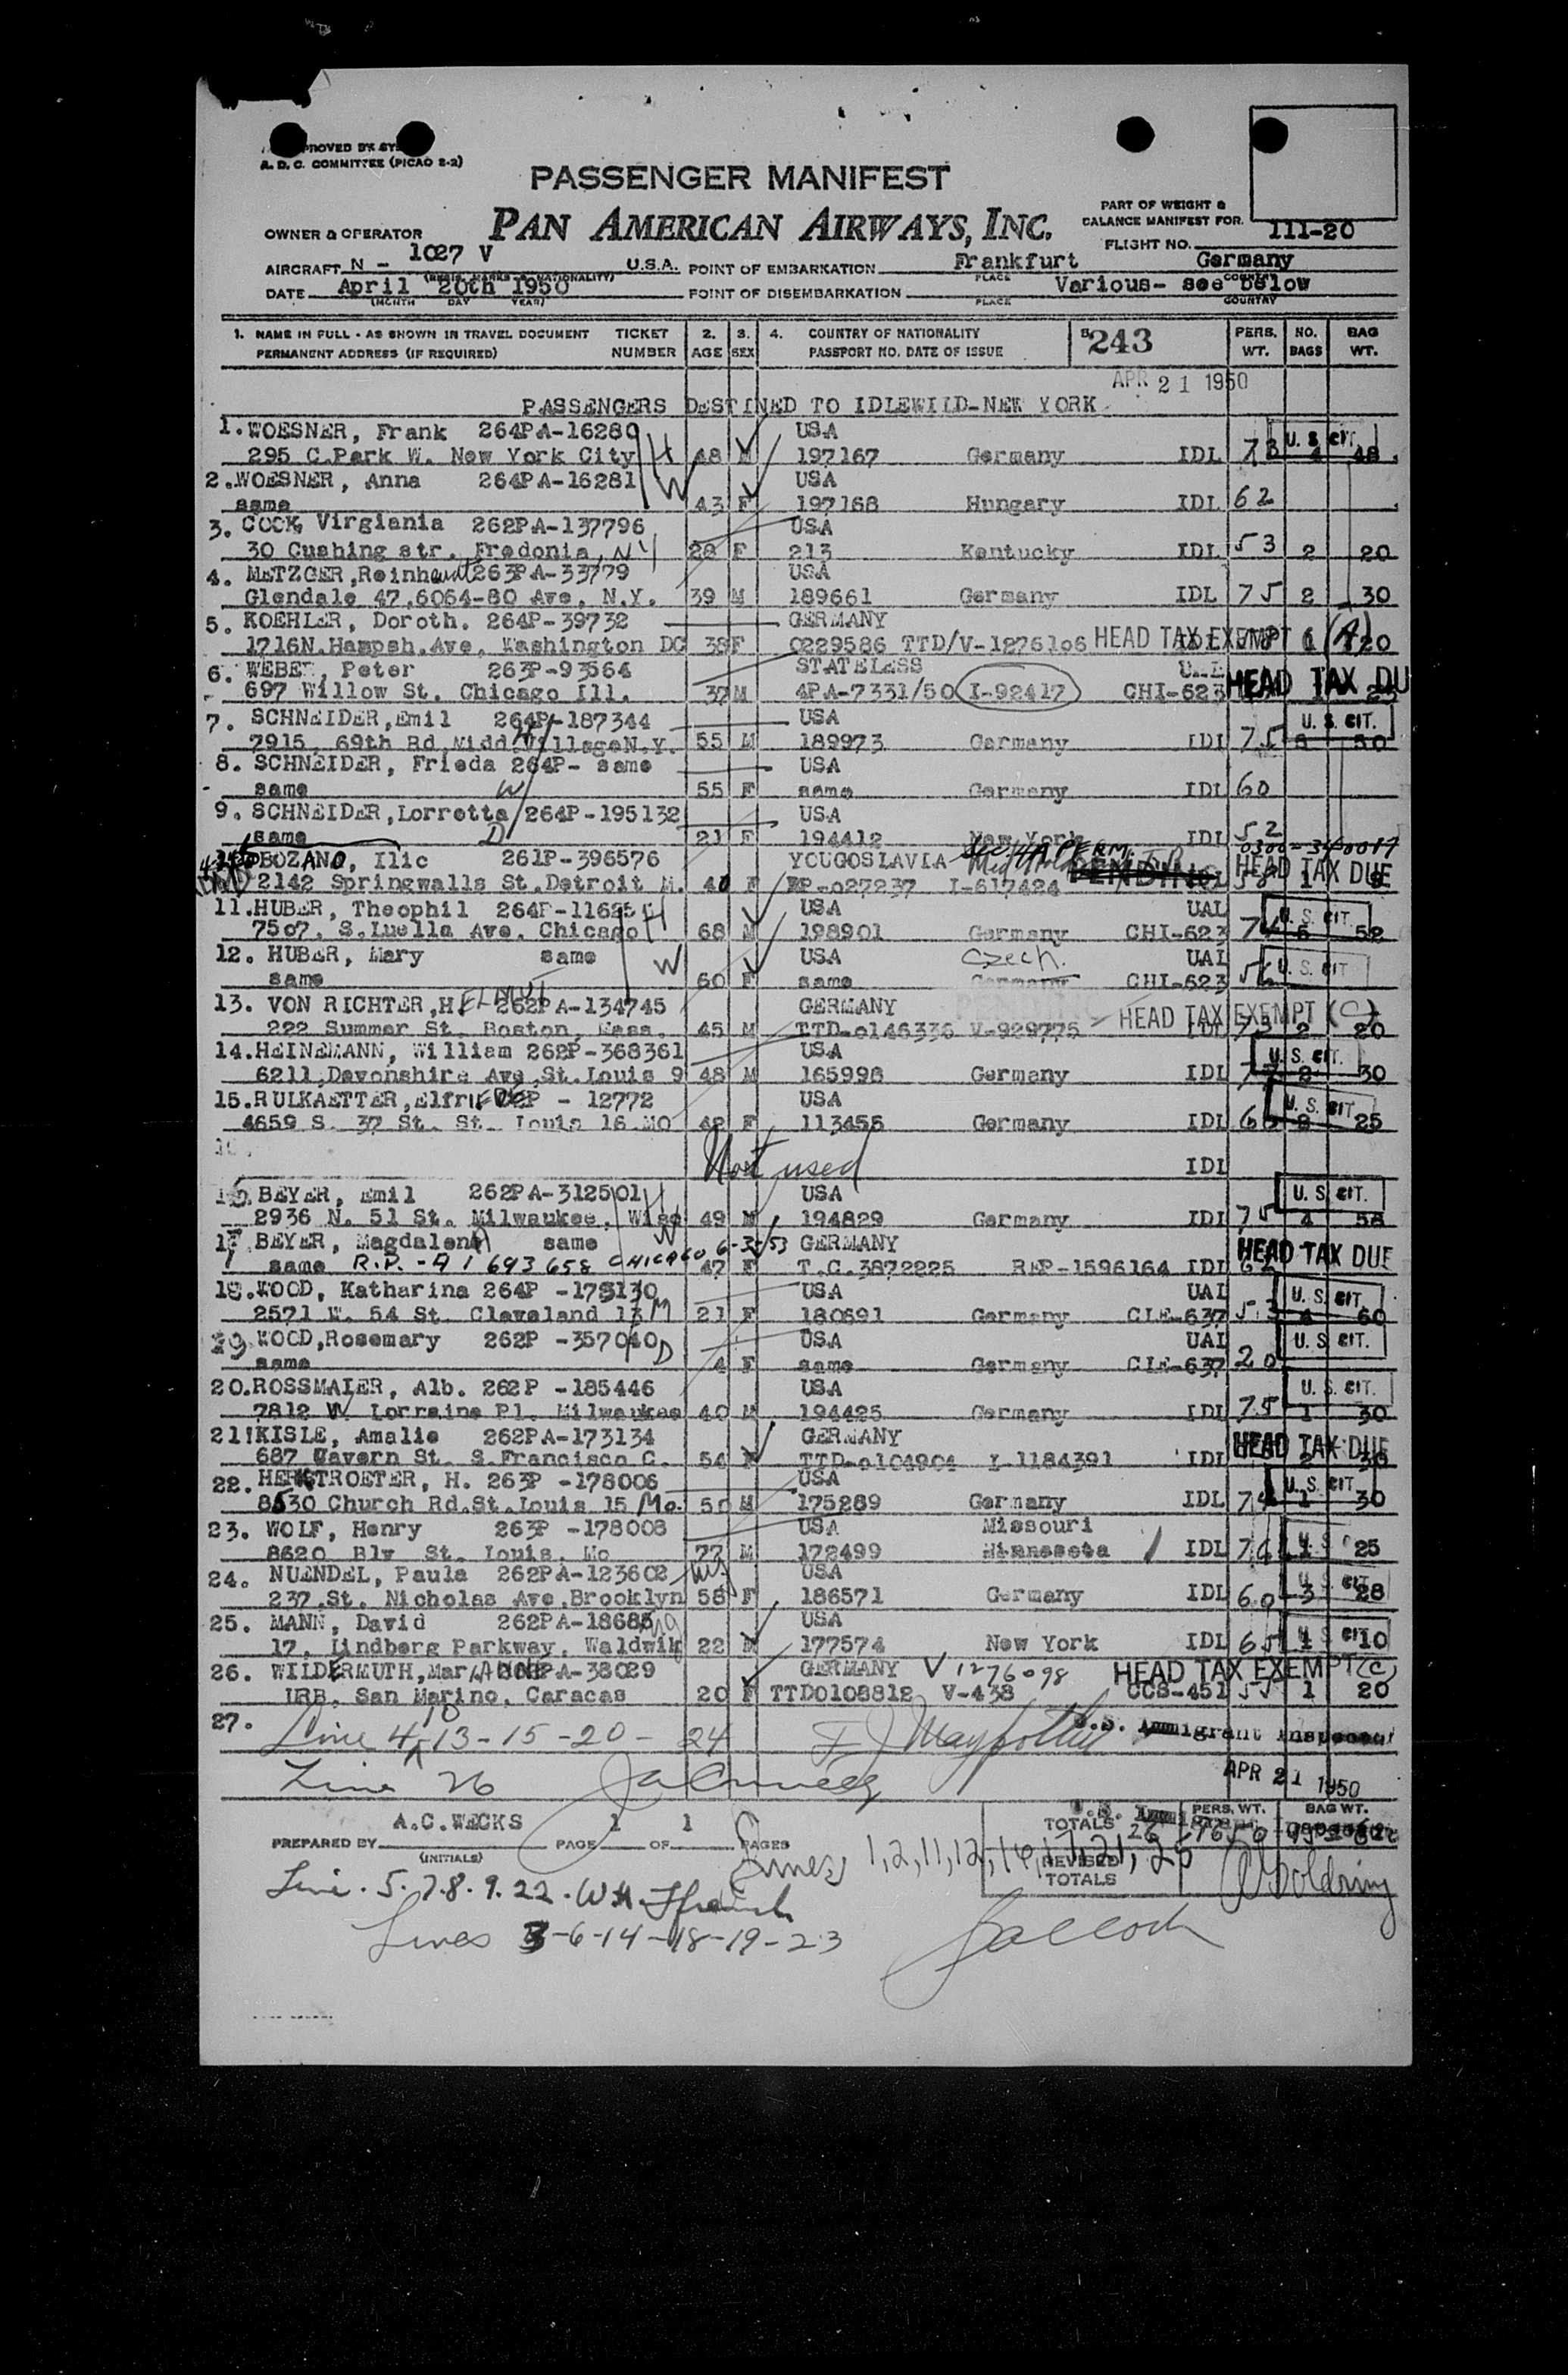 PROVED BY
A. D. C. COMMITTEE (PICAO 2-2)
PASSENGER MANIFEST
PART OF WEIGHT &
BALANCE MANIFEST FOR
OWNER & OPERATOR PAN AMERICAN AIRWAYS, INC.
FLIGHT NO. 111-20
AIRCRAFT N - 1027 V U.S.A. POINT OF EMBARKATION Frankfurt Germany
(REGIS. MARKS & NATIONALITY) PLACE COUNTRY
DATE April 20th 1950 POINT OF DISEMBARKATION Various- see below
(MONTH DAY YEAR) PLACE COUNTRY
1. NAME IN FULL - AS SHOWN IN TRAVEL DOCUMENT TICKET 2. 3. 4. COUNTRY OF NATIONALITY 243 PERS. NO. BAG
PERMANENT ADDRESS (IF REQUIRED) NUMBER AGE SEX PASSPORT NO. DATE OF ISSUE WT. BAGS WT.
APR 21 1950
PASSENGERS DESTINED TO IDLEWILD-NEW YORK
1. WOESNER, Frank 264PA-16280 H USA U. S. CIT.
295 C.Park W. New York City 48 M 197167 Germany IDL 73 4 48
2. WOESNER, Anna 264PA-16281 W USA
same 43 F 197168 Hungary IDL 62
3. COOK, Virgiania 262PA-137796 USA
30 Cushing str. Fredonia, NY 28 F 213 Kentucky IDL 53 2 20
4. METZGER, 263PA-33779 USA
Glendale 47,6064-80 Ave. N.Y. 39 M 189661 Germany IDL 75 2 30
5. KOEHLER, Doroth. 264P-39732 GERMANY
1716N.Hampsh.Ave. Washington DC 38 F 0229586 TTD/V-1276106 HEAD TAX EXEMPT (A) 1 20
6. WEBER, Peter 263P-93564 STATELESS
697 Willow St. Chicago Ill. 37 M 4PA-7331/50 I-92417 CHI-623 HEAD TAX DU
7. SCHNEIDER,Emil 264P-187344 H USA U. S. CIT.
7915, 69th Rd.Midd.VillageN.Y. 55 M 189973 Germany IDL 75 50
8. SCHNEIDER, Frieda 264P- same USA
same W 55 F same Germany IDL 60
9. SCHNEIDER,Lorretta 264P-195132 USA
same D 21 F 194412 New York IDL 52
BOZANO, Ilic 261P-396576 YOUGOSLAVIA 0300-3400 HEAD TAX DUE
2142 Springwalls St.Detroit M. 40 F EP-027237 I-617424 PENDING 58 1
11. HUBER, Theophil 264P-11625 H USA UAL U. S. CIT.
7507, S.Luella Ave. Chicago 68 M 198901 Germany CHI-623 52
12. HUBER, Mary same W USA Czech. UAL U. S. CIT
same 60 F same Germany CHI-623 56
13. VON RICHTER,HELMUT 262PA-134745 GERMANY PENDING HEAD TAX EXEMPT (C)
222 Summer St. Boston, Mass. 45 M TTD-0146336 V-929775 IDL 73 2 20
14. HEINEMANN, William 262P-368361 USA U. S. CIT.
6211,Devonshire Ave.St.Louis 9 48 M 165998 Germany IDL 2 30
15. RULKAETTER, - 12772 USA U. S. CIT.
4659 S. 37 St. St. Louis 16 MO 42 F 113455 Germany IDL 25
Not used IDL
16. BEYER, Emil 262PA-312501 H USA U. S. CIT.
2936 N. 51 St. Milwaukee, Wisc 49 M 194829 Germany IDL 75 4 58
17. BEYER, Magdalena same W GERMANY HEAD TAX DUE
same R.P. -A 1693658 CHICAGO 47 F T.C.3872225 REP-1596164 IDL 62
18. WOOD, Katharina 264P -175130 USA UAL U. S. CIT.
2571 W. 54 St. Cleveland 13 M 21 F 180691 Germany CLE-637 53 4 60
19. WOOD,Rosemary 262P -357040 D USA UAL U. S. CIT.
same 4 F same Germany CLE-637 20
20. ROSSMAIER, Alb. 262P -185446 USA U. S. CIT.
7812 W. Lorraine Pl. Milwaukee 40 M 194425 Germany IDL 75 1 30
21. KISLE, Amalie 262PA-173134 GERMANY HEAD TAX DUE
687 Wavern St. S.Francisco C. 54 F TTD-0104904 I-1184391 IDL 2 30
22. HERSTROETER, H. 263P -178006 USA U. S. CIT.
8530 Church Rd.St.Louis 15 Mo. 50 M 175289 Germany IDL 74 1 30
23. WOLF, Henry 263P -178008 USA Missouri U. S. CIT
8620 Blv St. Louis, Mo 77 M 172499 Minnesota IDL 74 1 25
24. NUENDEL, Paula 262PA-123602 USA U. S. CIT
237,St. Nicholas Ave.Brooklyn 58 F 186571 Germany IDL 60 3 28
25. MANN, David 262PA-18685 USA U. S. CIT
17, Lindberg Parkway, Waldwik 22 M 177574 New York IDL 65 1 10
26. WILDERMUTH, PA-38029 GERMANY V 1276098 HEAD TAX EXEMPT (C)
URB. San Marino, Caracas 20 F TTD0108812 V-438 CCS-451 55 1 20
27. Line 4, 10 13 - 15 - 20 - 24 U.S. Immigrant Inspector
Line 26 APR 21 1950
A.C. WECKS 1 1 TOTALS 26 PERS. WT. BAG WT.
PREPARED BY PAGE OF PAGES
(INITIALS)
Lines 1, 2, 11, 12, 16, 17, 21, 25 REVISED TOTALS Goldring
Line. 5. 7. 8. 9. 22. W.H.
Lines 3-6-14-18-19-23